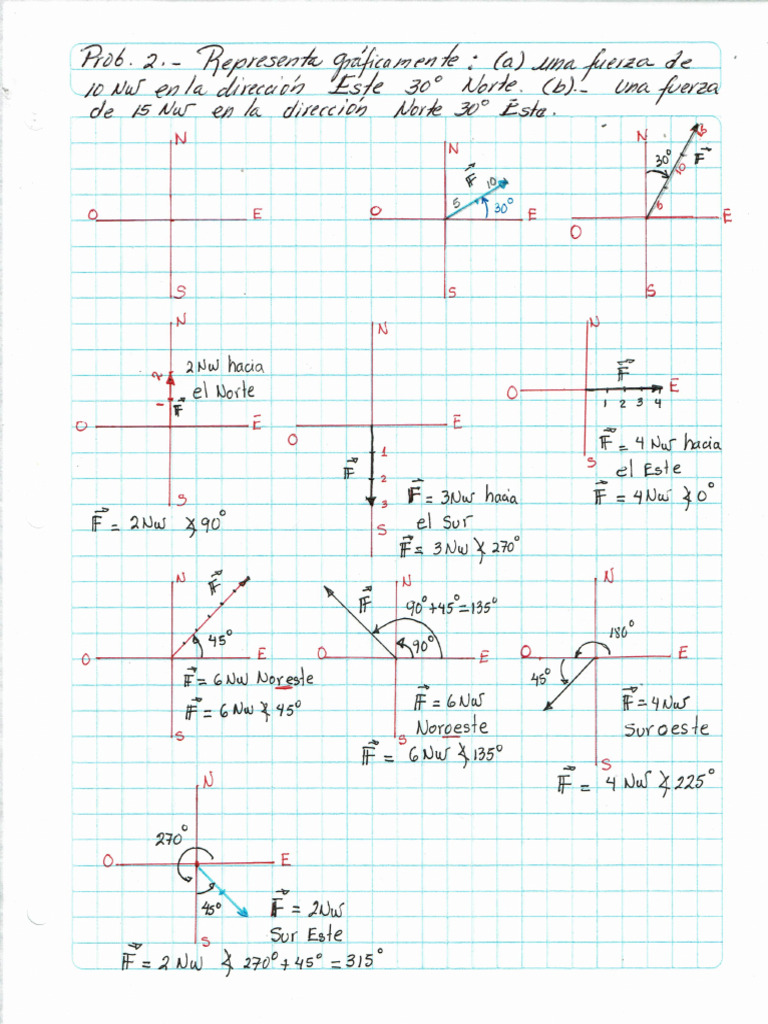 Prob. 2.- Representa gráficamente: (a) una fuerza de
10 Nw en la dirección Este 30° Norte. (b).- una fuerza
de 15 Nw en la dirección Norte 30° Este.
N
O E
S
N
F
5 10
30°
O E
S
N
30°
5 10 15
F
O E
S
N
2 2Nw hacia
el Norte
1 F
O E
S
F = 2Nw ∡90°
N
O E
1
F 2
3
S
F = 3Nw hacia
el Sur
F = 3Nw ∡270°
N
F
O E
1 2 3 4
S
F = 4 Nw hacia
el Este
F = 4Nw ∡0°
N
F
45°
O E
F = 6Nw Noreste
F = 6Nw ∡45°
S
N
F
90°+45°=135°
90°
O E
F = 6Nw
Noroeste
S
F = 6Nw ∡135°
N
180°
O E
45°
F = 4Nw
Suroeste
S
F = 4 Nw ∡225°
N
270°
O E
45°
F = 2Nw
Sur Este
S
F = 2 Nw ∡ 270°+45°=315°